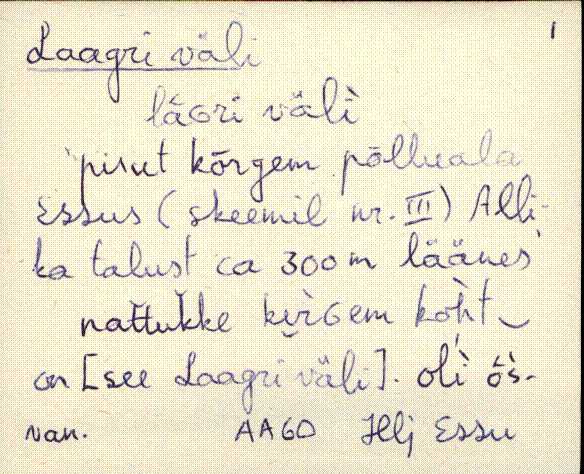 1
Laagri väli
läGri väli
pisut kõrgem põlluala
Essus (skeemil nr. III) Alli-
ka talust ca 300 m läänes
nattukke kirGem koht
on [see Laagri väli]. oli õs-
AA60 Hlj Essu